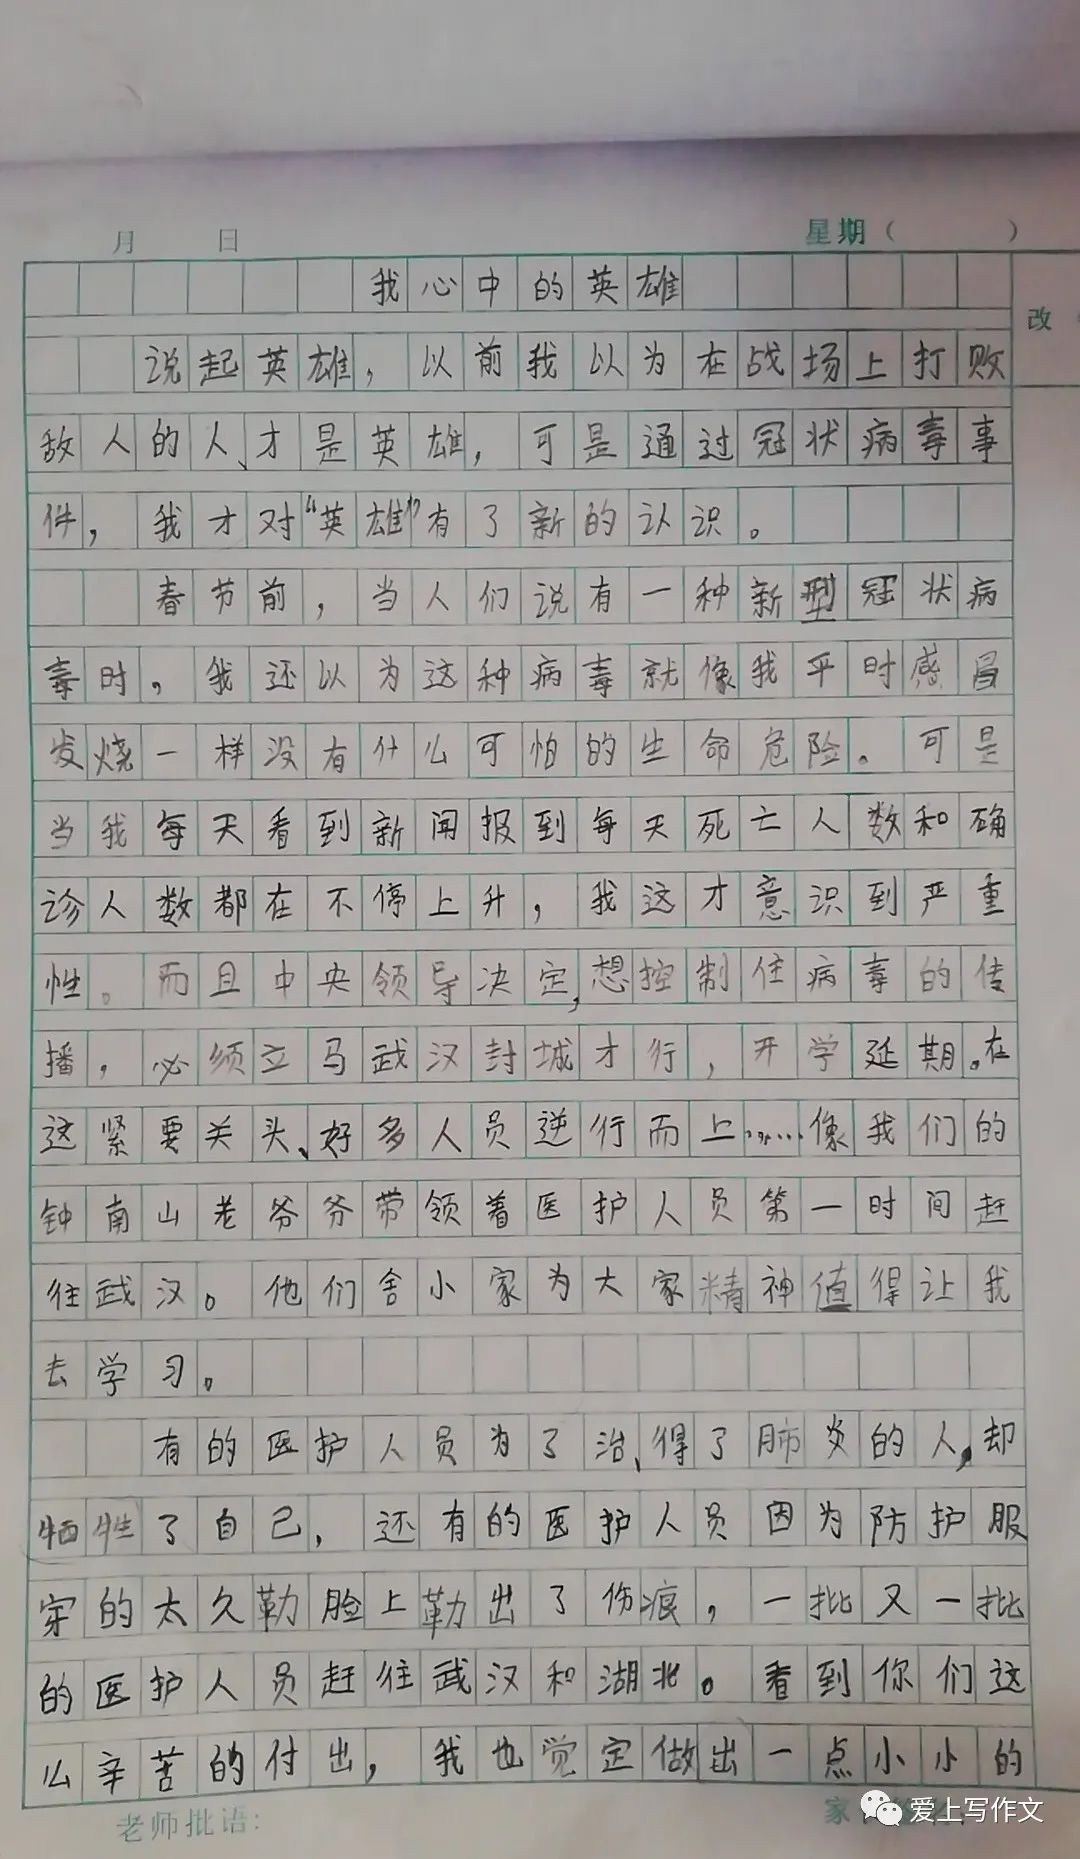 月 日 星期( )
我心中的英雄
改
说起英雄，以前我以为在战场上打败
敌人的人、才是英雄，可是通过冠状病毒事
件，我才对“英雄”有了新的认识。
春节前，当人们说有一种新型冠状病
毒时，我还以为这种病毒就像我平时感冒
发烧一样没有什么可怕的生命危险。可是
当我每天看到新闻报到每天死亡人数和确
诊人数都在不停上升，我这才意识到严重
性。而且中央领导决定，想控制住病毒的传
播，必须立马武汉封城才行，开学延期。在
这紧要关头、好多人员逆行而上……像我们的
钟南山老爷爷带领着医护人员第一时间赶
往武汉。他们舍小家为大家精神值得让我
去学习。
有的医护人员为了治、得了肺炎的人，却
牺牲了自己，还有的医护人员因为防护服
穿的太久勒脸上勒出了伤痕，一批又一批
的医护人员赶往武汉和湖北。看到你们这
么辛苦的付出，我也觉定做出一点小小的
老师批语：
家
爱上写作文